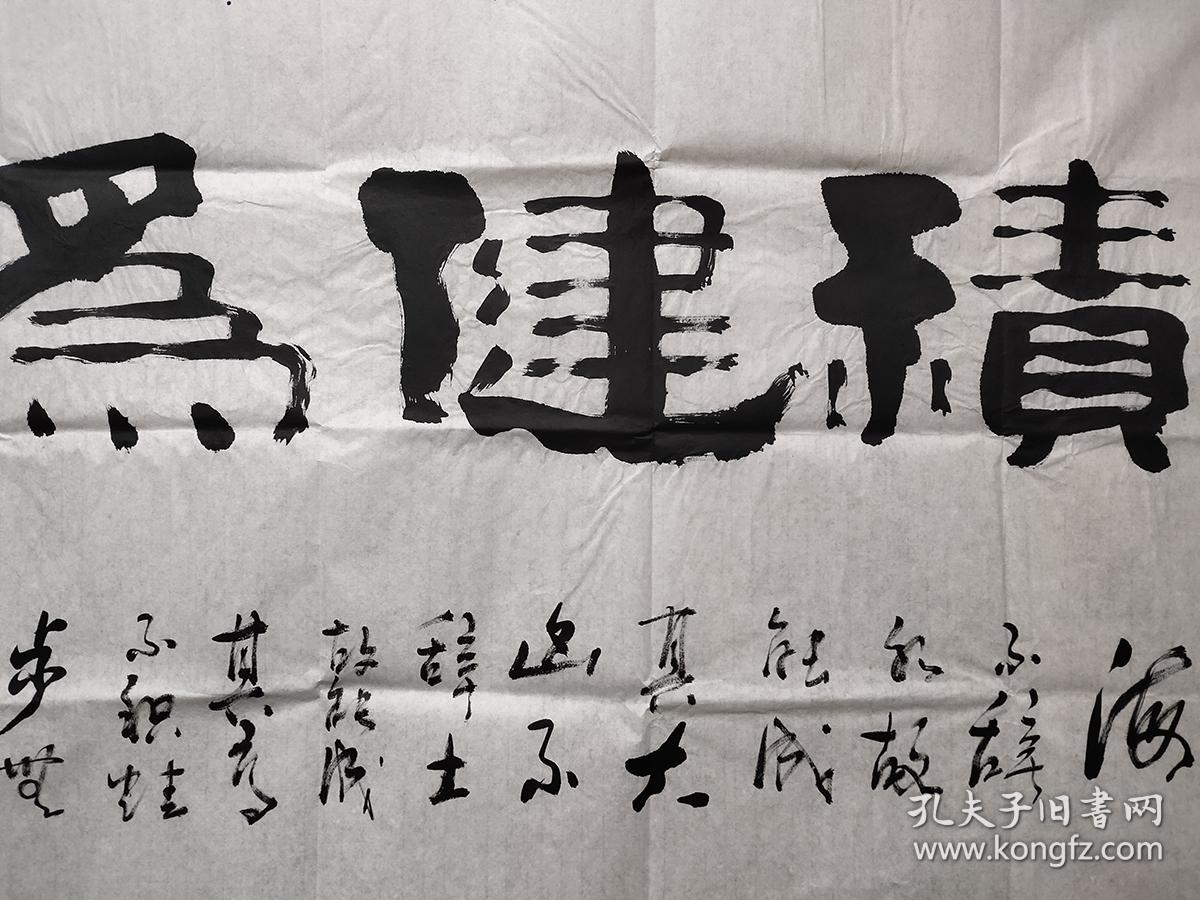 積健爲
海
不辞
水故
能成
其大
山不
辞土
故能成
其高
不积跬
步無
孔夫子旧书网
www.kongfz.com